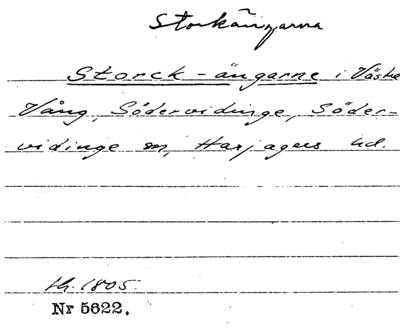 Storkängarna
Storck-ängarne i Västra
Vång, Södervidinge, Söder-
vidinge sn, Harjagers hd.
th. 1805.
Nr 5622.